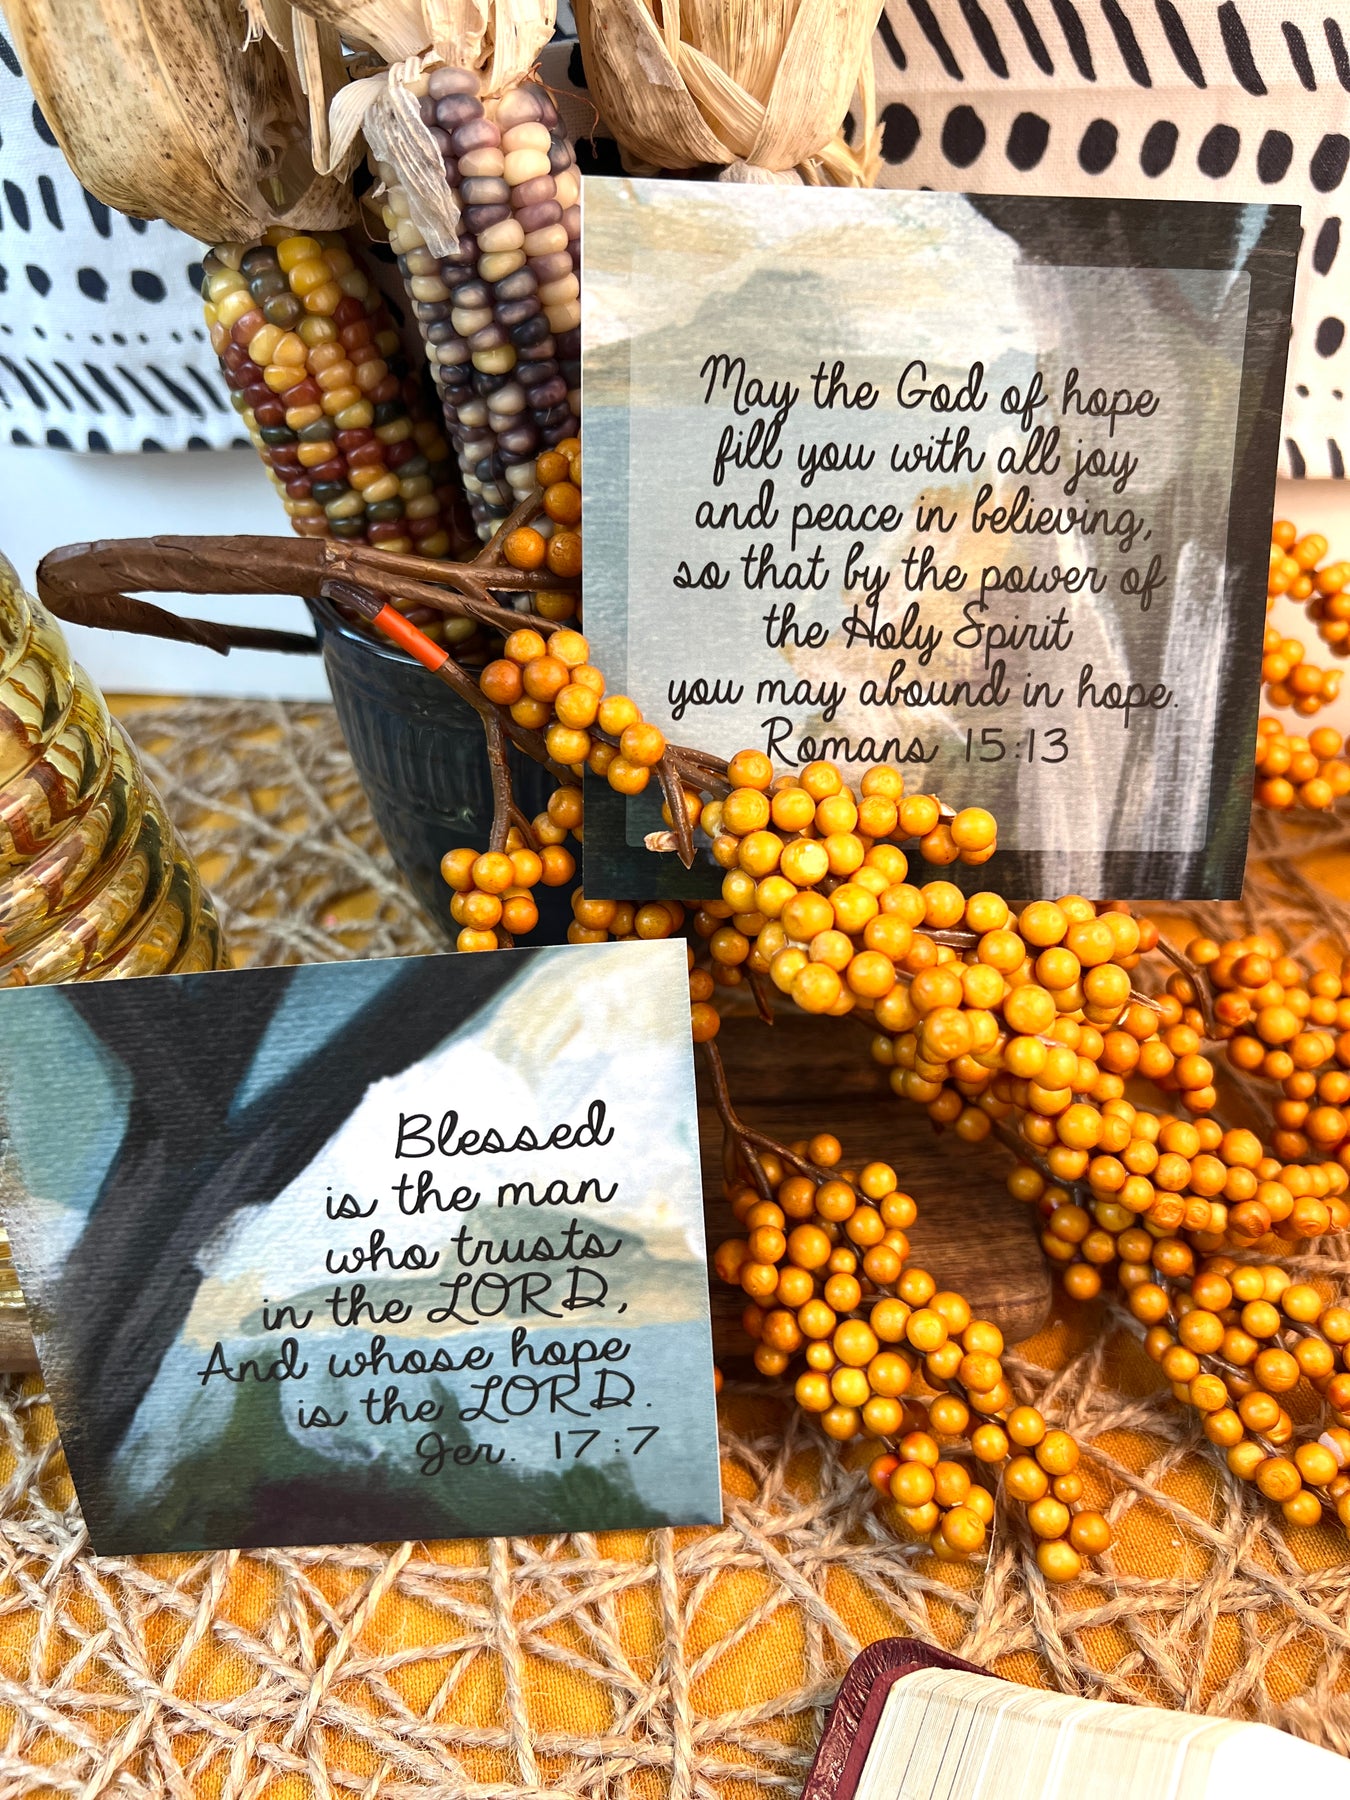 May the God of hope
fill you with all joy
and peace in believing,
so that by the power of
the Holy Spirit
you may abound in hope.
Romans 15:13
Blessed
is the man
who trusts
in the LORD,
And whose hope
is the LORD.
Jer. 17:7